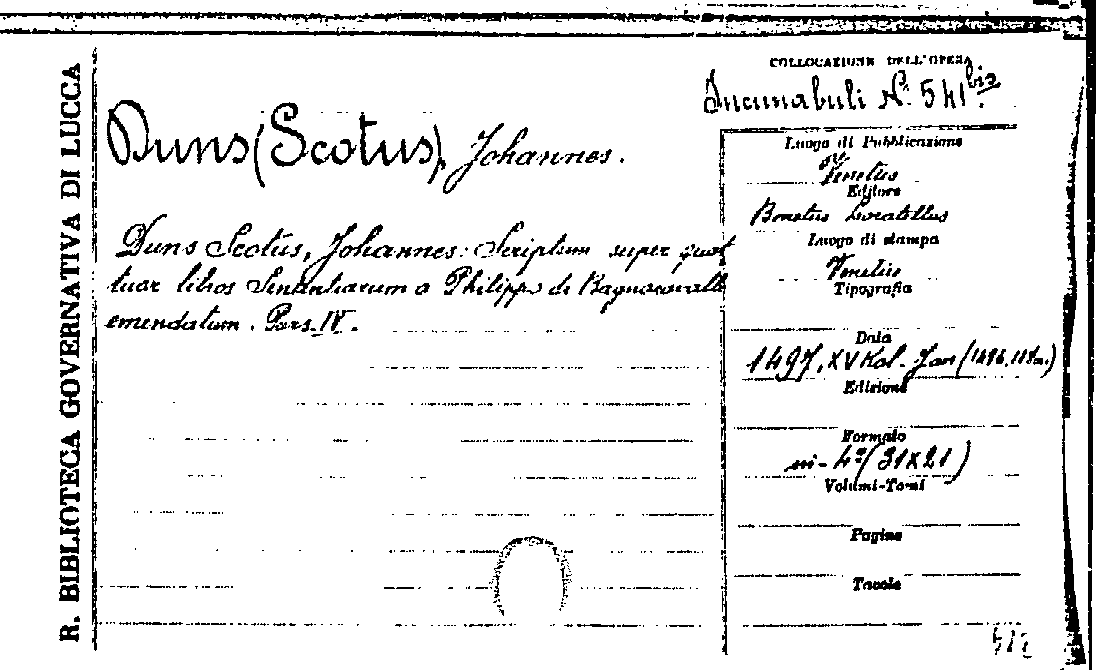 R. BIBLIOTECA GOVERNATIVA DI LUCCA
COLLOCAZIONE DELL'OPERA
Incunabuli N.º 541 bis
Duns (Scotus), Johannes.
Duns Scotus, Johannes: Scriptum super quat
tuor libros Sententiarum a Philippo di Bagnacavallo
emendatum. Pars. IV.
Luogo di Pubblicazione
Venetus
Editore
Bonetus Locatellus
Luogo di stampa
Venetiis
Tipografia
Data
1497, XV Kal. Jan (1496, 18
Edizione
Formato
in-4º (31X21)
Volumi-Tomi
Pagine
Tavole